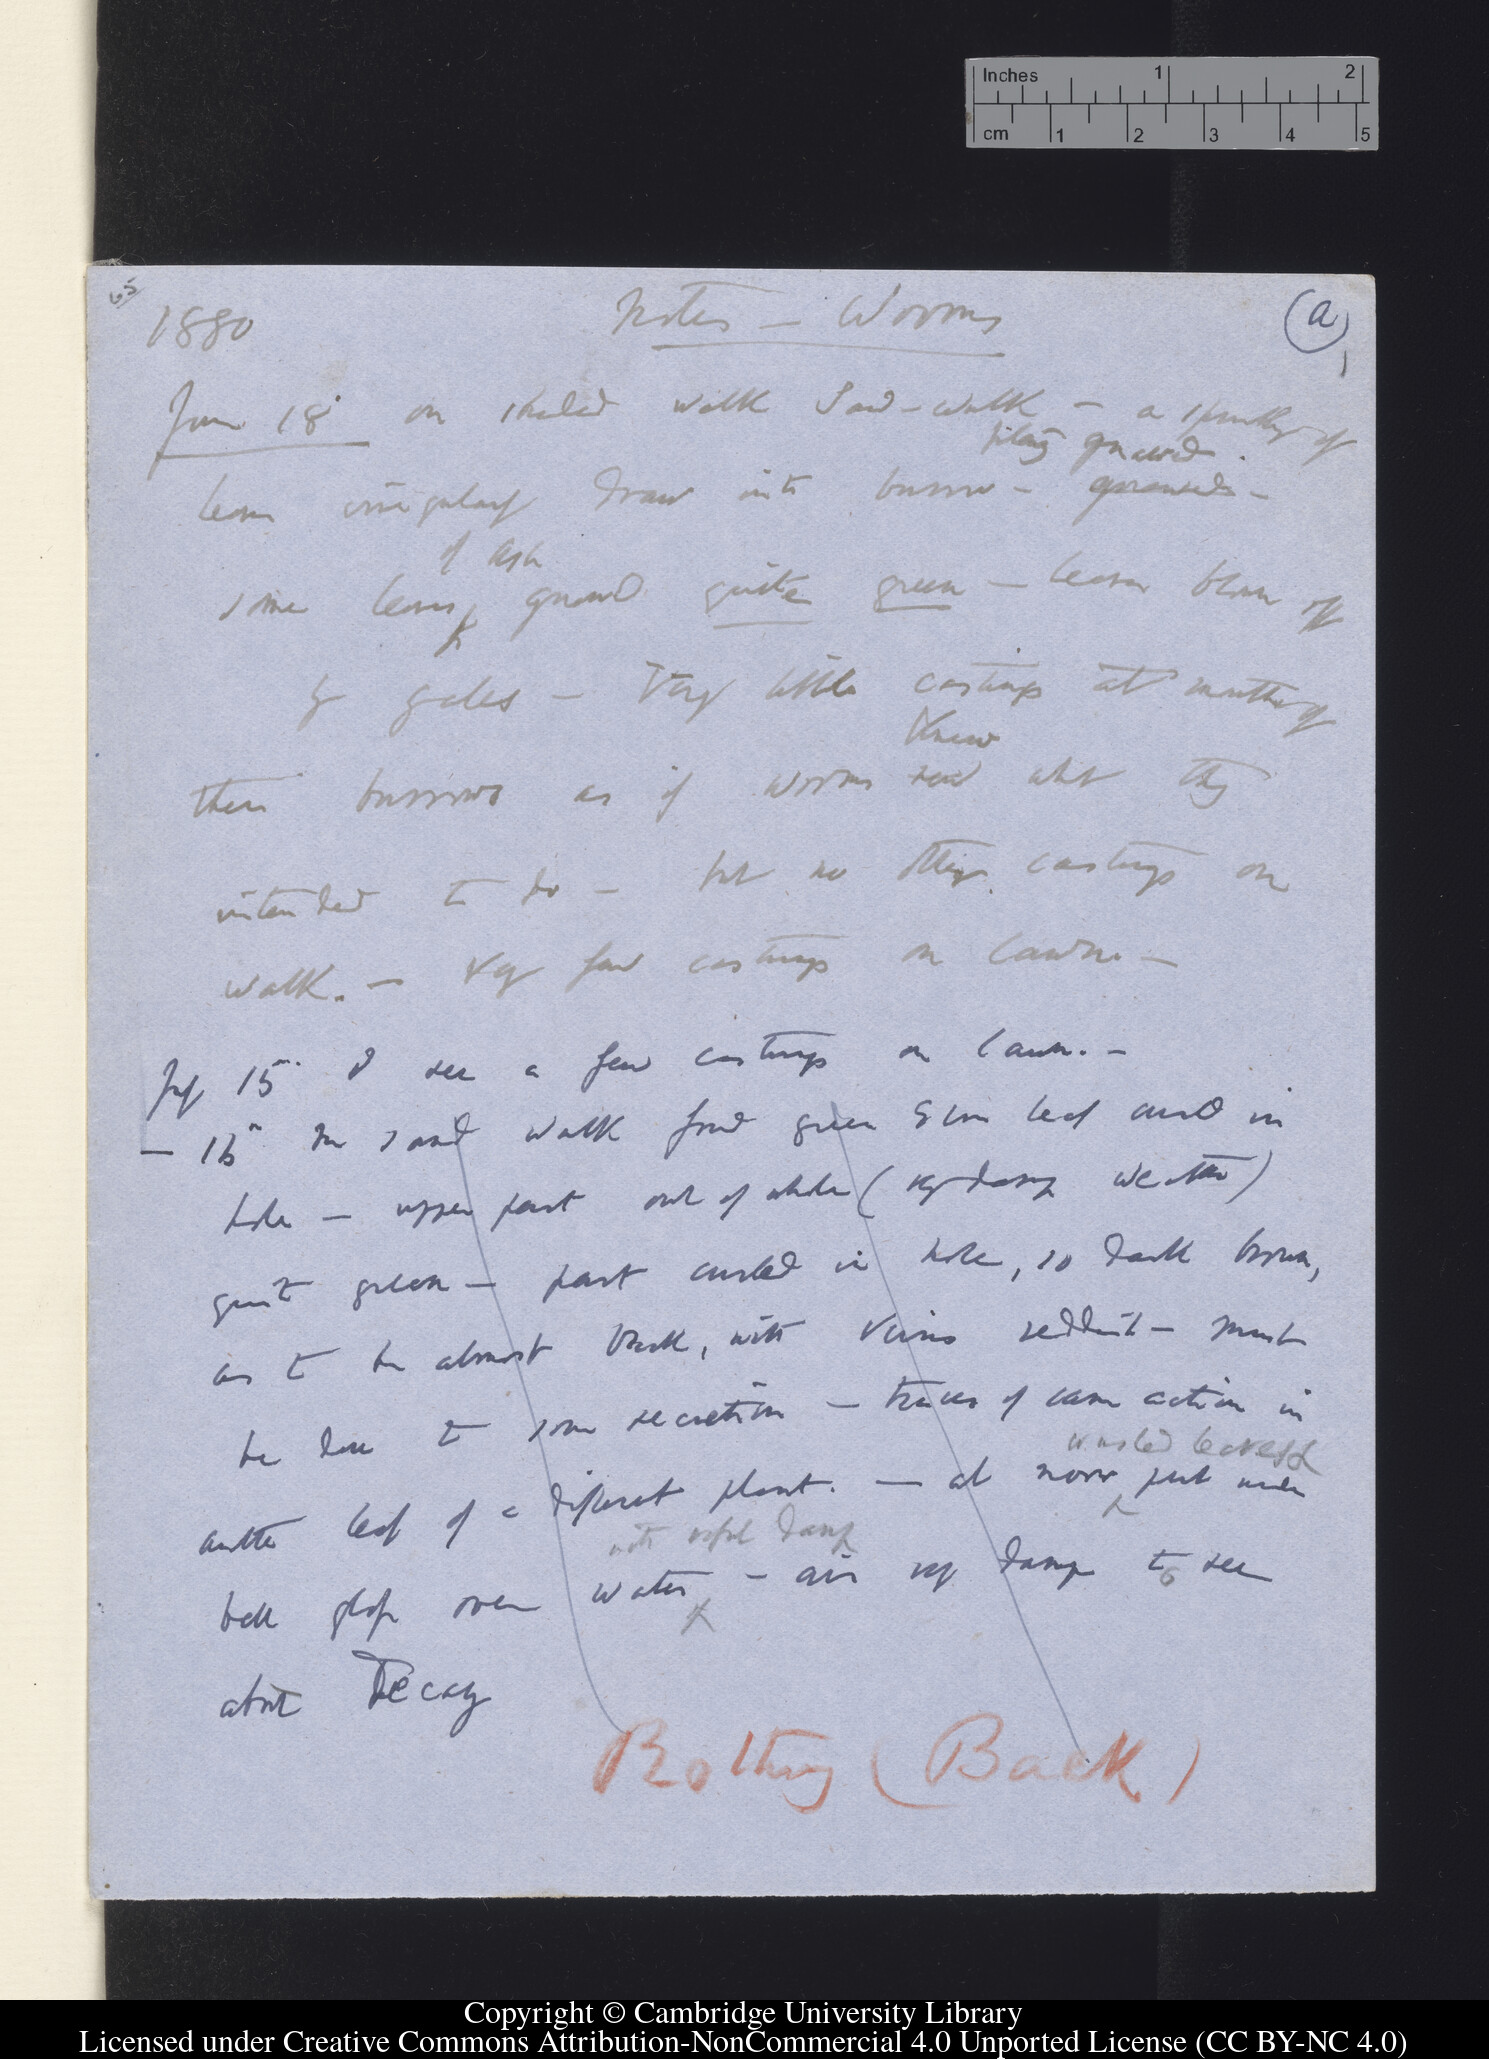 Inches 1 2
cm 1 2 3 4 5
65
1880 Notes — Worms (a)
1
June 18 on shaded walk Sand-walk — a of
gnawed
leaves irregularly drawn into burrow —
of ash
some leaves gnawed quite green — leaves blown off
by gales — Very little castings at mouths of
knew
their burrows as if worms what they
intended to do — but no other castings on
walk. — Very few castings on lawn —
July 15 I see a few castings on lawn. —
— 16 In sand walk found green Elm leaf curled in
hole — upper part out of hole (very damp weather)
quite green — part curled in hole, so dark brown,
as to be almost black, with veins reddish — must
be due to some secretion — traces of same action in
washed leaves &
another leaf of a different plant. — at noon put under
damp
bell glass over water — air very damp to see
about Decay
Rotting (Back)
Copyright © Cambridge University Library
Licensed under Creative Commons Attribution-NonCommercial 4.0 Unported License (CC BY-NC 4.0)